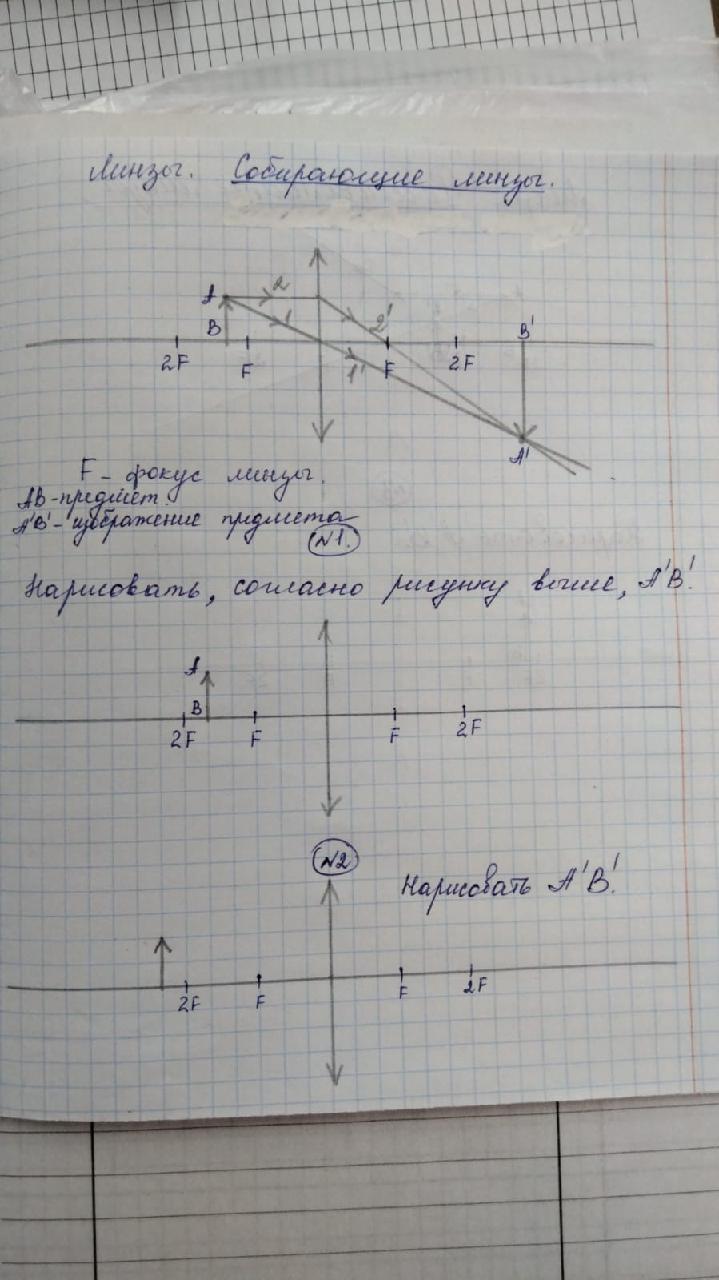 Линзы. Собирающие линзы.
A 2
B 1 2' B'
2F F 1' F 2F
A'
F - фокус линзы.
AB - предмет.
A'B' - изображение предмета
N1.
Нарисовать, согласно рисунку выше, A'B'.
A
B
2F F F 2F
N2
Нарисовать A'B'.
2F F F 2F